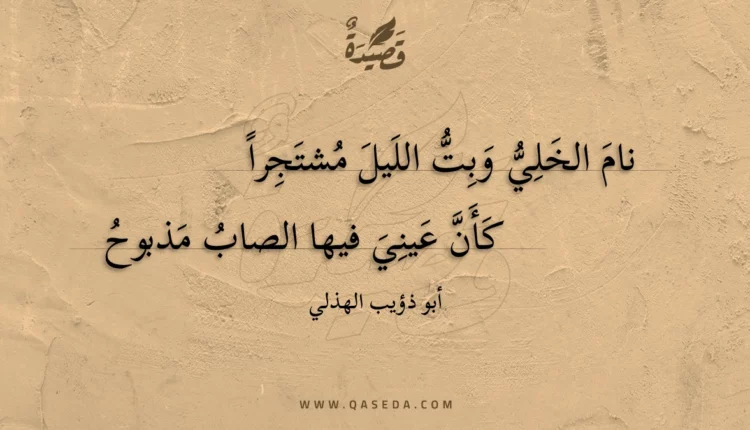 قَصِيدَةٌ
نامَ الخَلِيُّ وَبِتُّ اللَيلَ مُشتَجِراً
كَأَنَّ عَينِيَ فيها الصابُ مَذبوحُ
أبو ذؤيب الهذلي
WWW.QASEDA.COM